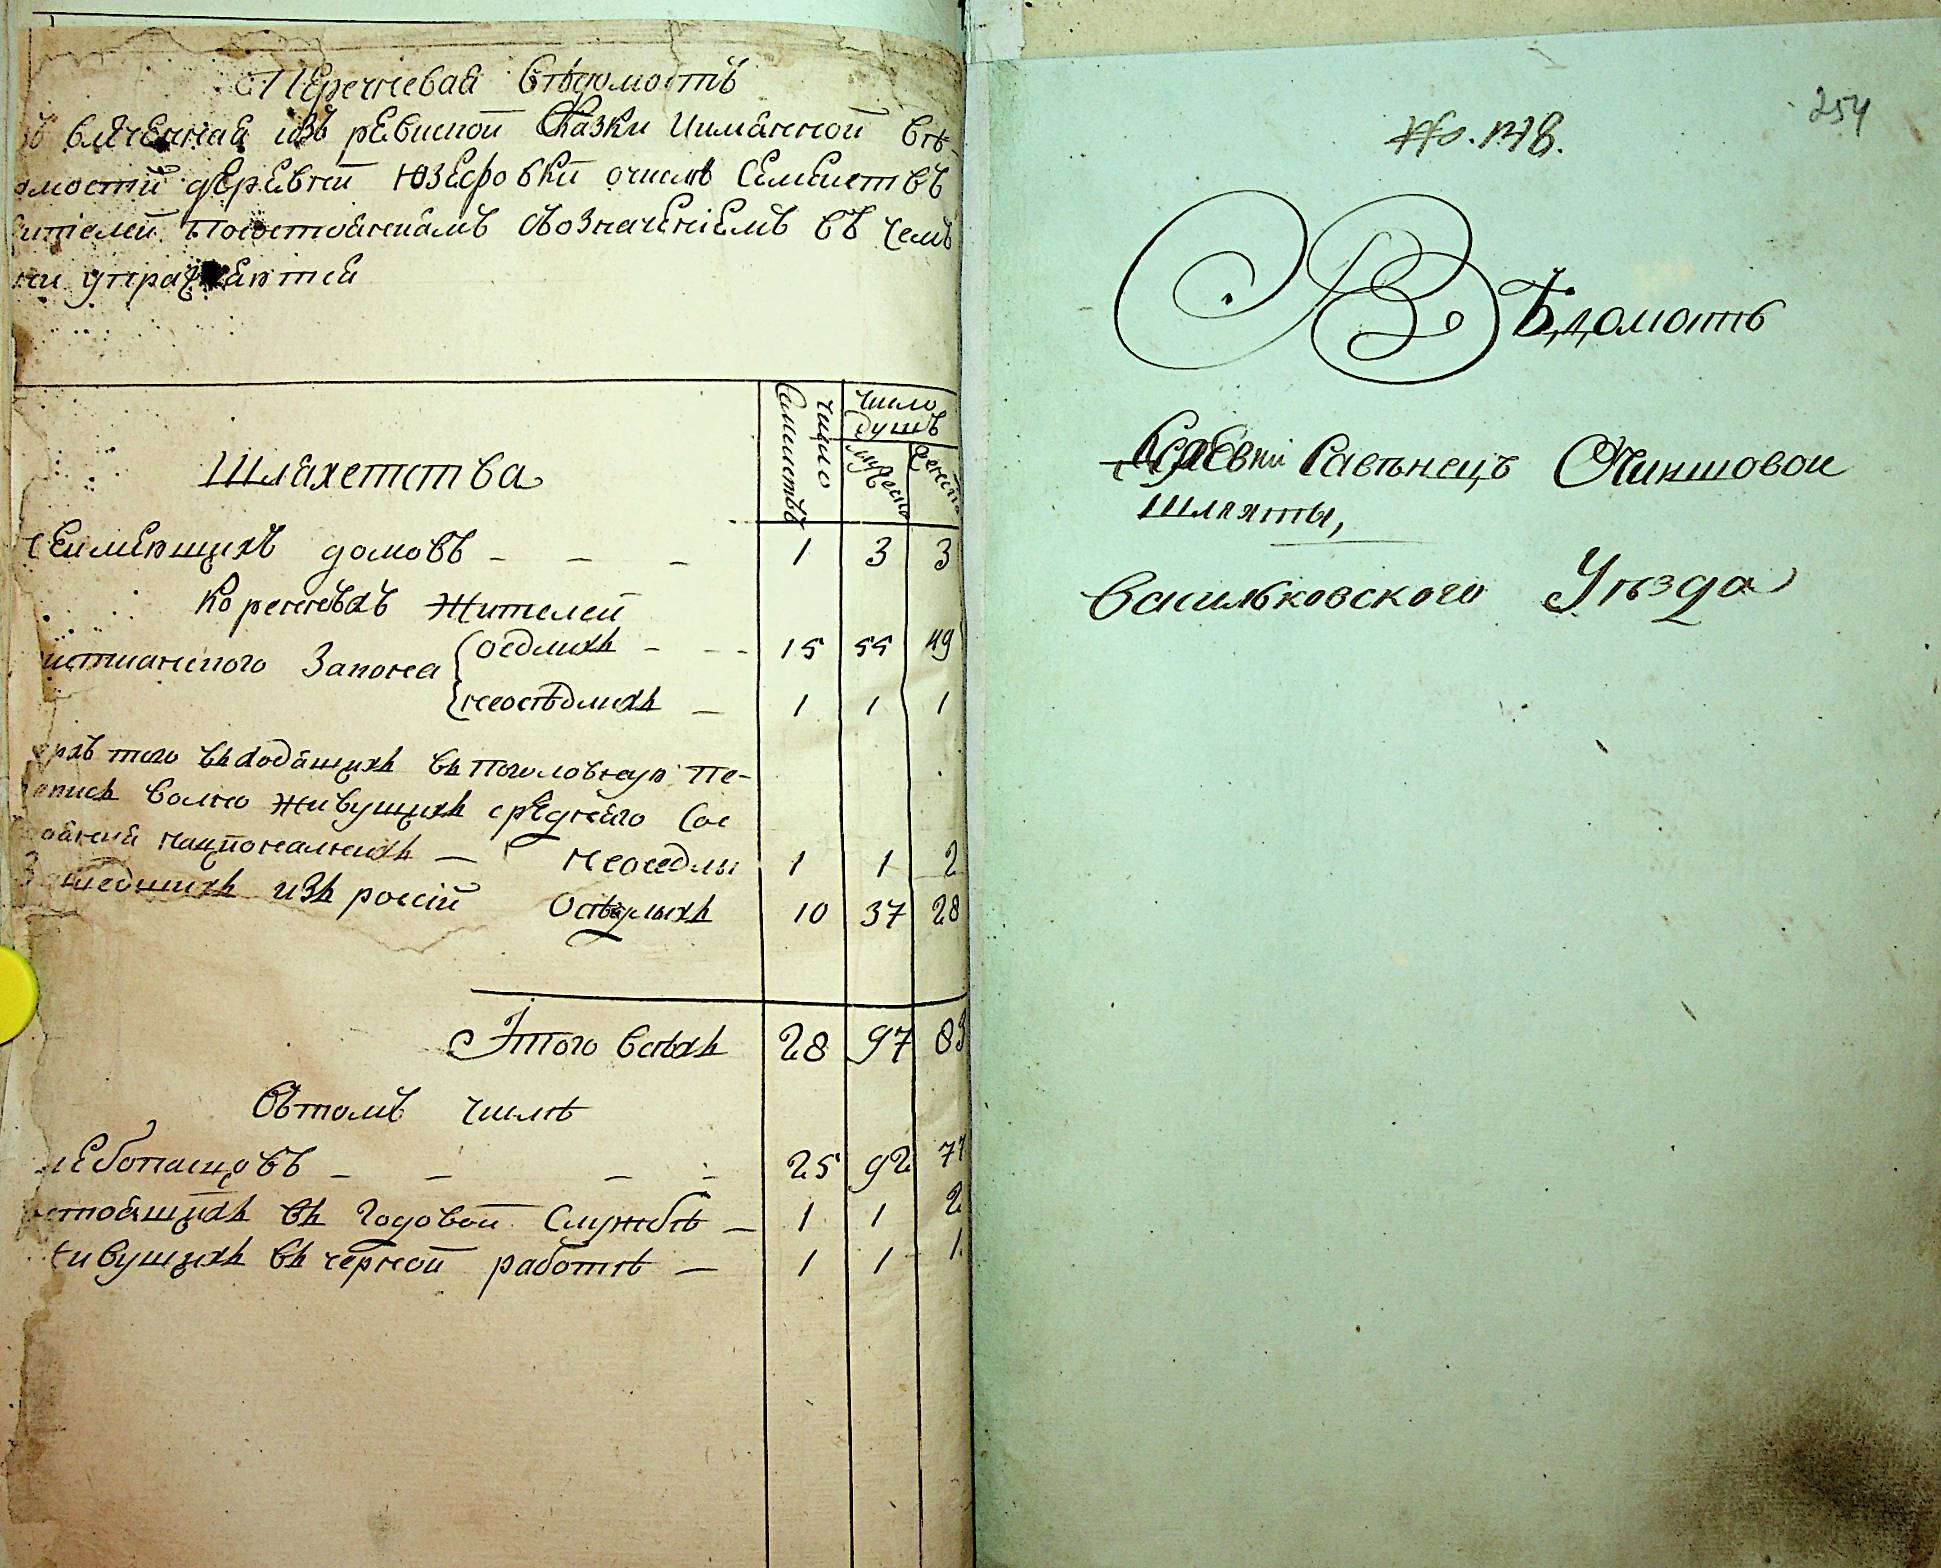 Перечневая Вѣдомость
влеченная изъ ревиской Сказки Иимянной вѣ-
омостй деревни Юзефовки очислѣ Семеиствъ
ителей Посостояниамъ Собозначениемъ въ чемъ
ни упражняютса
Число Семеиствъ
число душъ
мужеска
женска
Шляхетства
неимеющихъ домовъ – – – 1 3 3
Коренныхъ жителей
истианского Закона
оседлихъ – – – 15 55 49
неосѣдлихъ – 1 1 1
того входящихъ въ поголовную пе-
репись волно живущихъ среднего Сос
ояний националнихъ – неоседлы 1 1 2
Зашедшихъ изъ россий Осѣдлыхъ 10 37 28
Итого всѣхъ 28 97 83
Вътомъ числѣ
лебопашцовъ – – – – 25 92
стоящихъ въ Годовой Службѣ – 1 1 2
живущихъ въ черной работѣ – 1 1 1
254
No. 178.
Вѣдомость
Деревни Савѣнецъ Очиншовои
Шляхты,
Васильковского Уѣзда